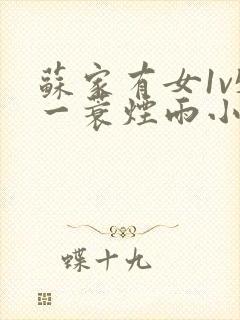 蘇家有女1v
一蓑煙雨小
蝶十九